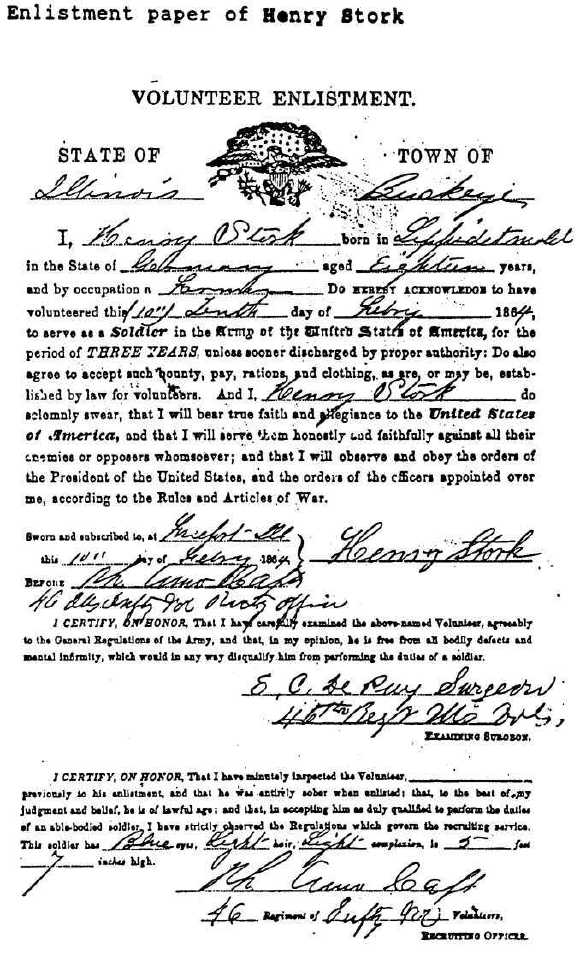 Enlistment paper of Henry Stork
VOLUNTEER ENLISTMENT.
STATE OF TOWN OF
Illinois Buckeye
I, Henry Stork born in Lippidetmold
in the State of Germany aged Eighteen years,
and by occupation a Farmer Do HEREBY ACKNOWLEDGE to have
volunteered this 10th Tenth day of Febry 1864,
to serve as a Soldier in the Army of the United States of America, for the
period of THREE YEARS, unless sooner discharged by proper authority: Do also
agree to accept such bounty, pay, rations, and clothing, as are, or may be, estab-
lished by law for volunteers. And I, Henry Stork do
solemnly swear, that I will bear true faith and allegiance to the United States
of America, and that I will serve them honestly and faithfully against all their
enemies or opposers whomsoever; and that I will observe and obey the orders of
the President of the United States, and the orders of the officers appointed over
me, according to the Rules and Articles of War.
Sworn and subscribed to, at Freeport Ill
this 10" day of Febry 1864, Henry Stork
BEFORE Capt
46 Ills Infty Vol Officer
I CERTIFY, ON HONOR, That I have carefully examined the above-named Volunteer, agreeably
to the General Regulations of the Army, and that, in my opinion, he is free from all bodily defects and
mental infirmity, which would in any way disqualify him from performing the duties of a soldier.
E. C. De Puy Surgeon
46th Regt Ills Vols,
EXAMINING SURGEON.
I CERTIFY, ON HONOR, That I have minutely inspected the Volunteer,
previously to his enlistment, and that he was entirely sober when enlisted; that, to the best of my
judgment and belief, he is of lawful age; and that, in accepting him as duly qualified to perform the duties
of an able-bodied soldier, I have strictly observed the Regulations which govern the recruiting service.
This soldier has Blue eyes, Light hair, Light complexion, is 5 feet
7 inches high.
Capt
46 Regiment of Infty Volunteers,
RECRUITING OFFICER.